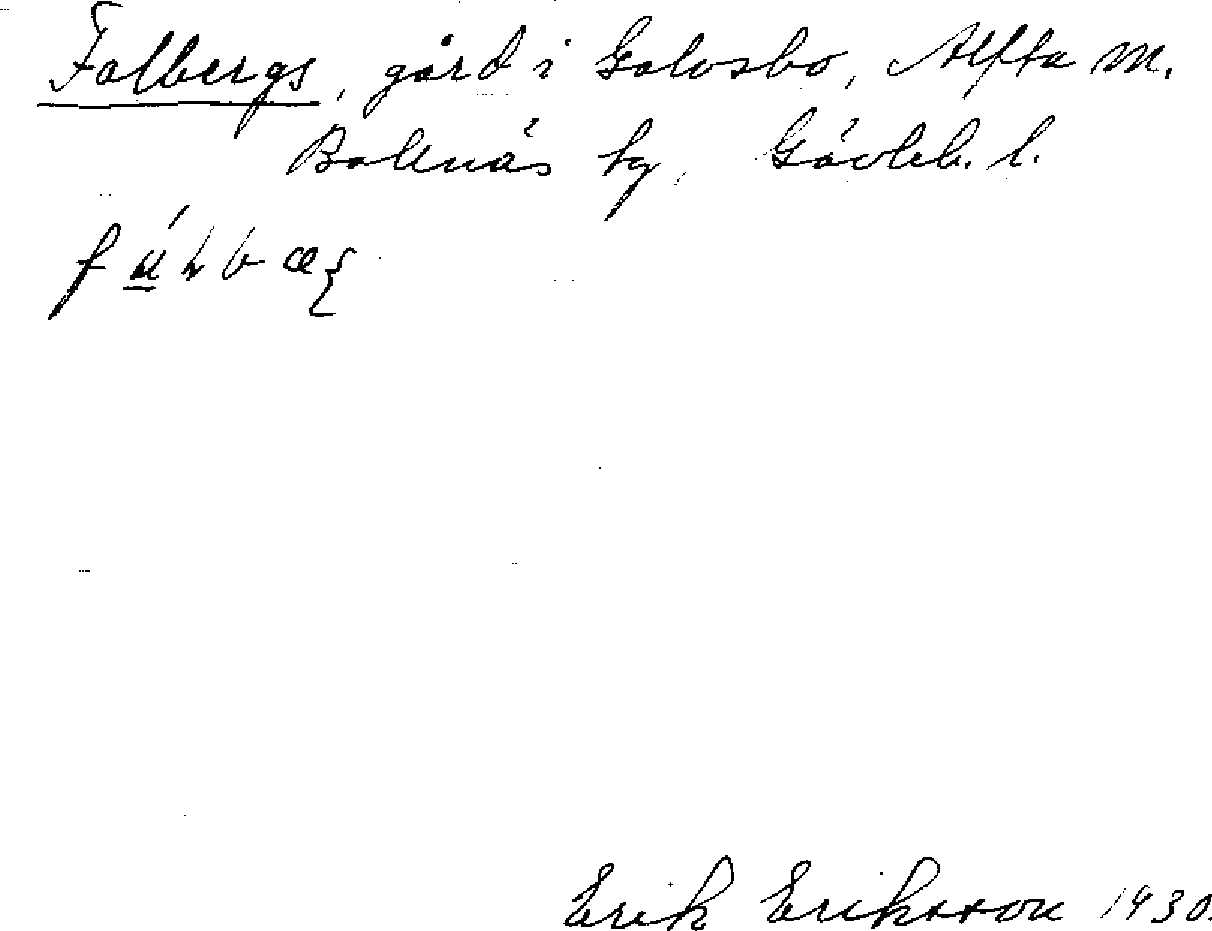 Falbergs, gård i Galvsbo, Alfta sn.
Bollnäs tg, Gävleb. l.
Erik Eriksson 1930.